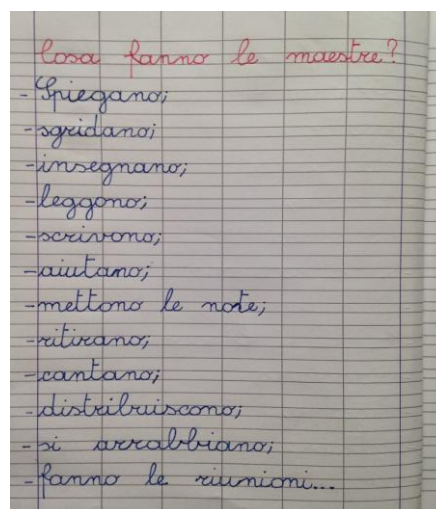 Cosa fanno le maestre?
-Spiegano;
-sgridano;
-insegnano;
-leggono;
-scrivono;
-aiutano;
-mettono le note;
-ritirano;
-cantano;
-distribuiscono;
-si arrabbiano;
-fanno le riunioni...